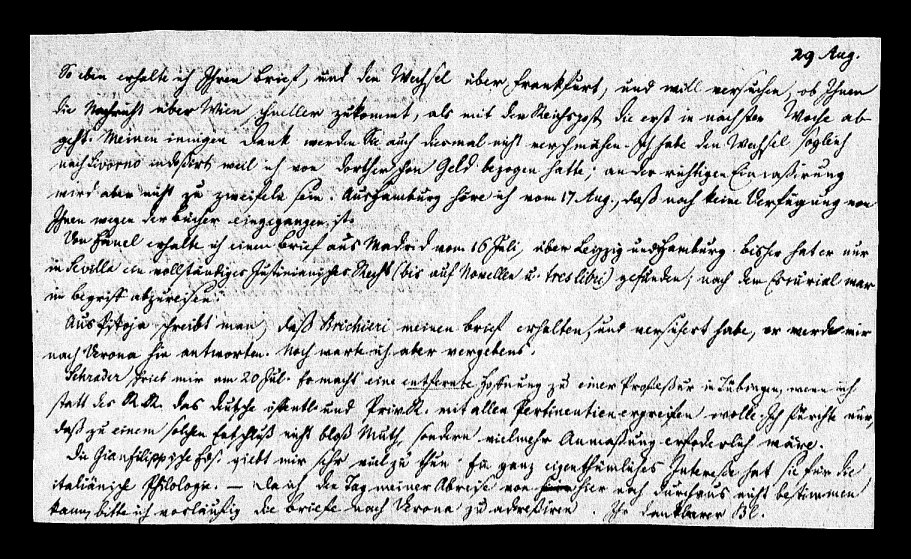 29 Aug.
So eben erhalte ich Ihren Brief, und den Wechsel über Frankfurt, und will versuchen, ob Ihnen
die Nachricht über Wien schneller zukommt, als mit der Reichspost die erst in nächster Woche ab
geht. Meinen innigen Dank werden Sie auch diesmal nicht verschmähen. Ich habe den Wechsel sogleich
nach Livorno indossirt weil ich von dorther schon Geld bezogen hatte; an der richtigen Einkassirung
wird aber nicht zu zweifeln sein. Aus Hamburg höre ich vom 17 Aug., daß noch keine Verfügung von
Ihnen wegen der Bücher eingegangen ist.
Von Hänel erhalte ich einen Brief aus Madrid vom 16 Juli, über Leipzig und Hamburg. bisher hat er nur
in Sevilla ein vollständiges Justinianisches Recht (bis auf Novellen u. tres libri) gefunden; nach dem Escurial war
er im begriff abzureisen.
Aus Pistoja schreibt man, daß Brichieri meinen Brief erhalten, und versichert habe, er werde mir
nach Verona hin antworten. Noch warte ich aber vergebens.
Schrader schrieb mir am 20 Jul. Er macht eine entfernte Hoffnung zu einer Professur in Tübingen, wenn ich
statt des R.R. das deutsche öffentl. und Priv.R. mit allen Pertinentien ergreifen wolle. Ich fürchte nur,
daß zu einem solchen Entschluß nicht bloß Muth, sondern vielmehr Anmassung erforderlich wäre.
Die Gianfilippische Hss. giebt mir sehr viel zu thun. Ein ganz eigenthümliches Interesse hat sie für die
italiänische Philologie. — Da ich den Tag meiner Abreise von hier noch durchaus nicht bestimmen
kann, bitte ich vorläufig die Briefe nach Verona zu adressiren. Ihr dankbarer Bl.